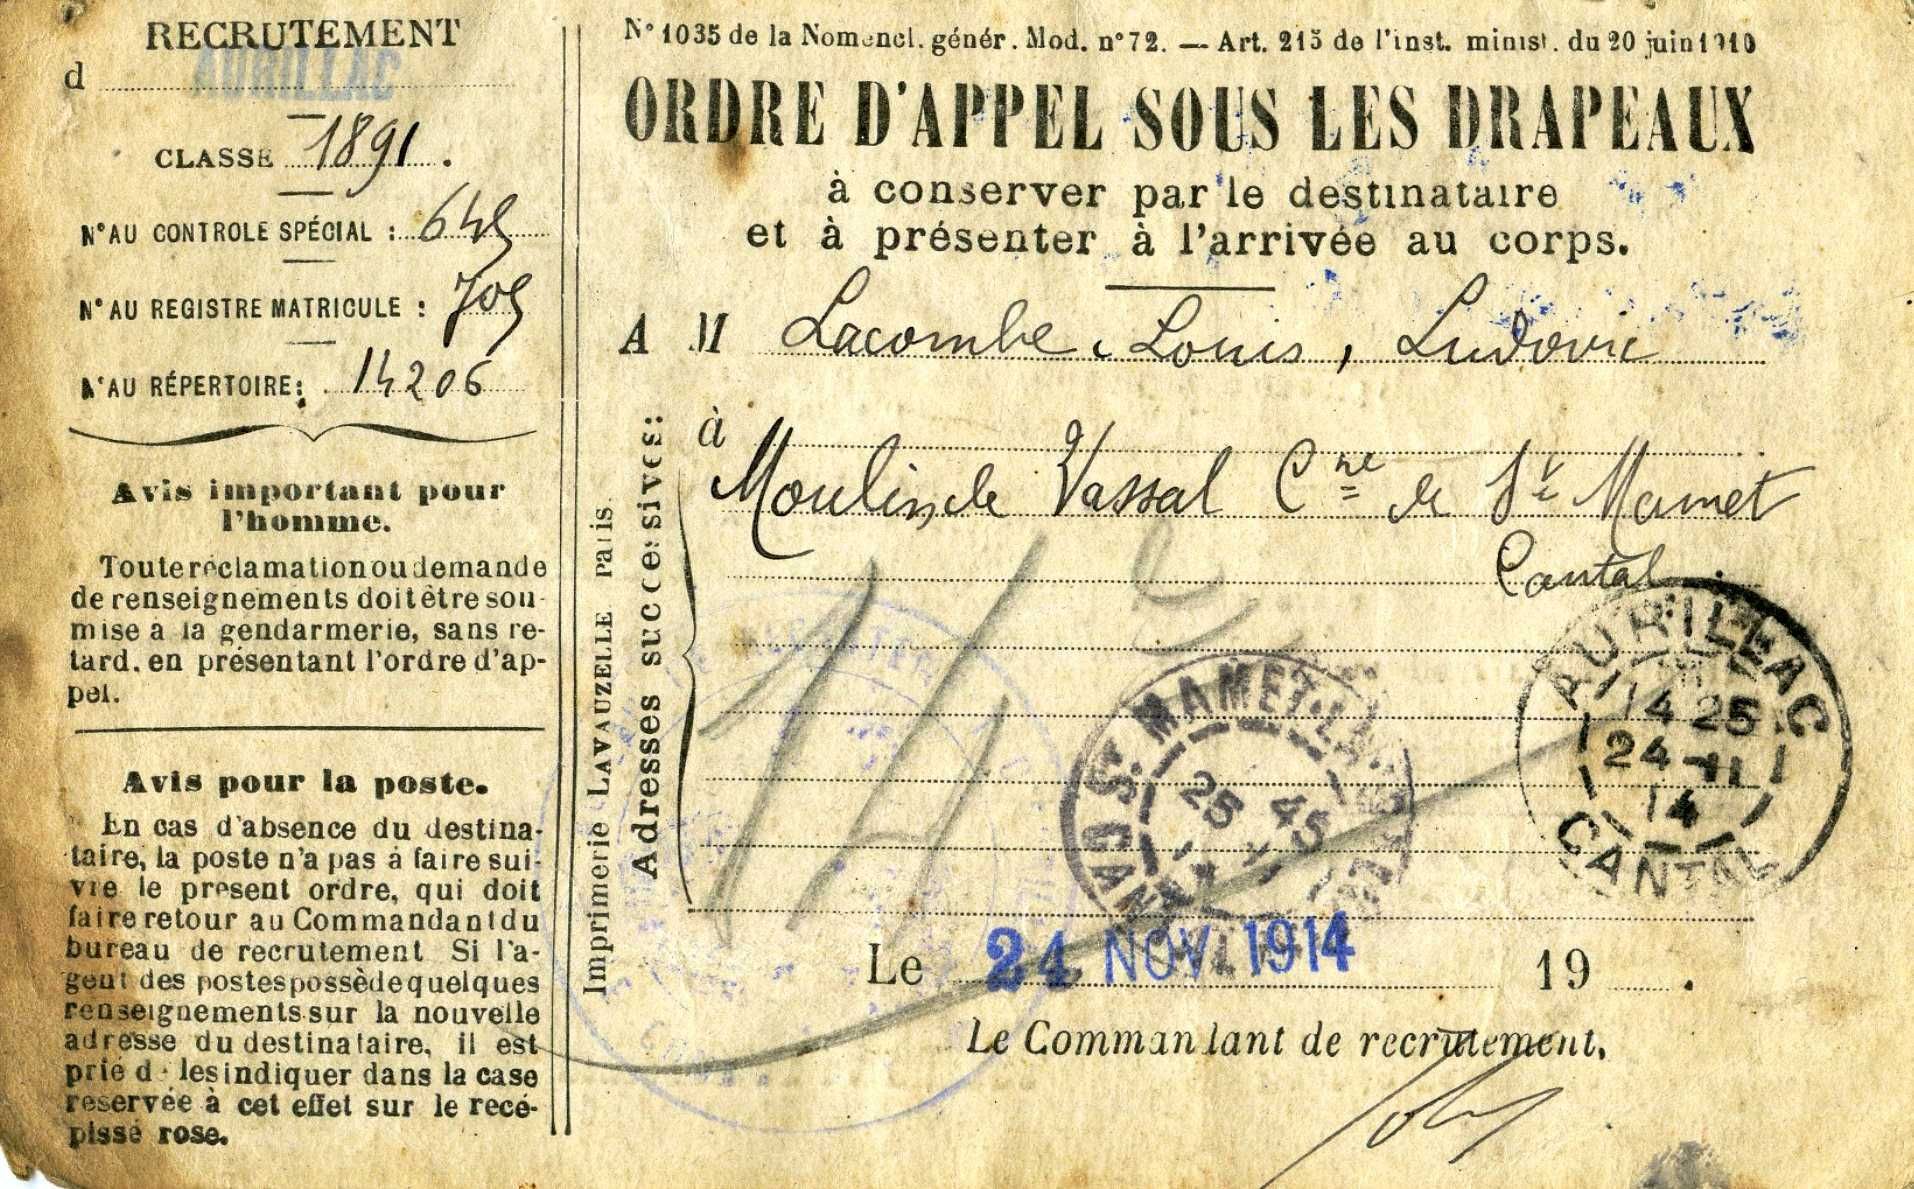 RECRUTEMENT
d AURILLAC
CLASSE 1891.
N° AU CONTROLE SPÉCIAL : 645
N° AU REGISTRE MATRICULE : 705
N° AU RÉPERTOIRE : 14206
Avis important pour
l'homme.
Toute réclamation ou demande
de renseignements doit être sou-
mise à la gendarmerie, sans re-
tard, en présentant l'ordre d'ap-
pel.
Avis pour la poste.
En cas d'absence du destina-
taire, la poste n'a pas à faire sui-
vre le présent ordre, qui doit
faire retour au Commandant du
bureau de recrutement Si l'a-
gent des postes possède quelques
renseignements sur la nouvelle
adresse du destinataire, il est
prié de les indiquer dans la case
reservée à cet effet sur le recé-
pissé rose.
Imprimerie LAVAUZELLE Paris.
N° 1035 de la Nomencl. génér. Mod. n° 72. — Art. 215 de l'inst. minist. du 20 juin 1910
ORDRE D'APPEL SOUS LES DRAPEAUX
à conserver par le destinataire
et à présenter à l'arrivée au corps.
A M Lacombe, Louis, Ludovic
Adresses successives:
à
Moulin de Vassal Cne de St Mamet
Cantal
ST MAMET-LA
CANTAL
25 45
AURILLAC
14 25
24-11
14
CANTAL
Le 24 NOV. 1914 19 .
Le Commandant de recrutement,